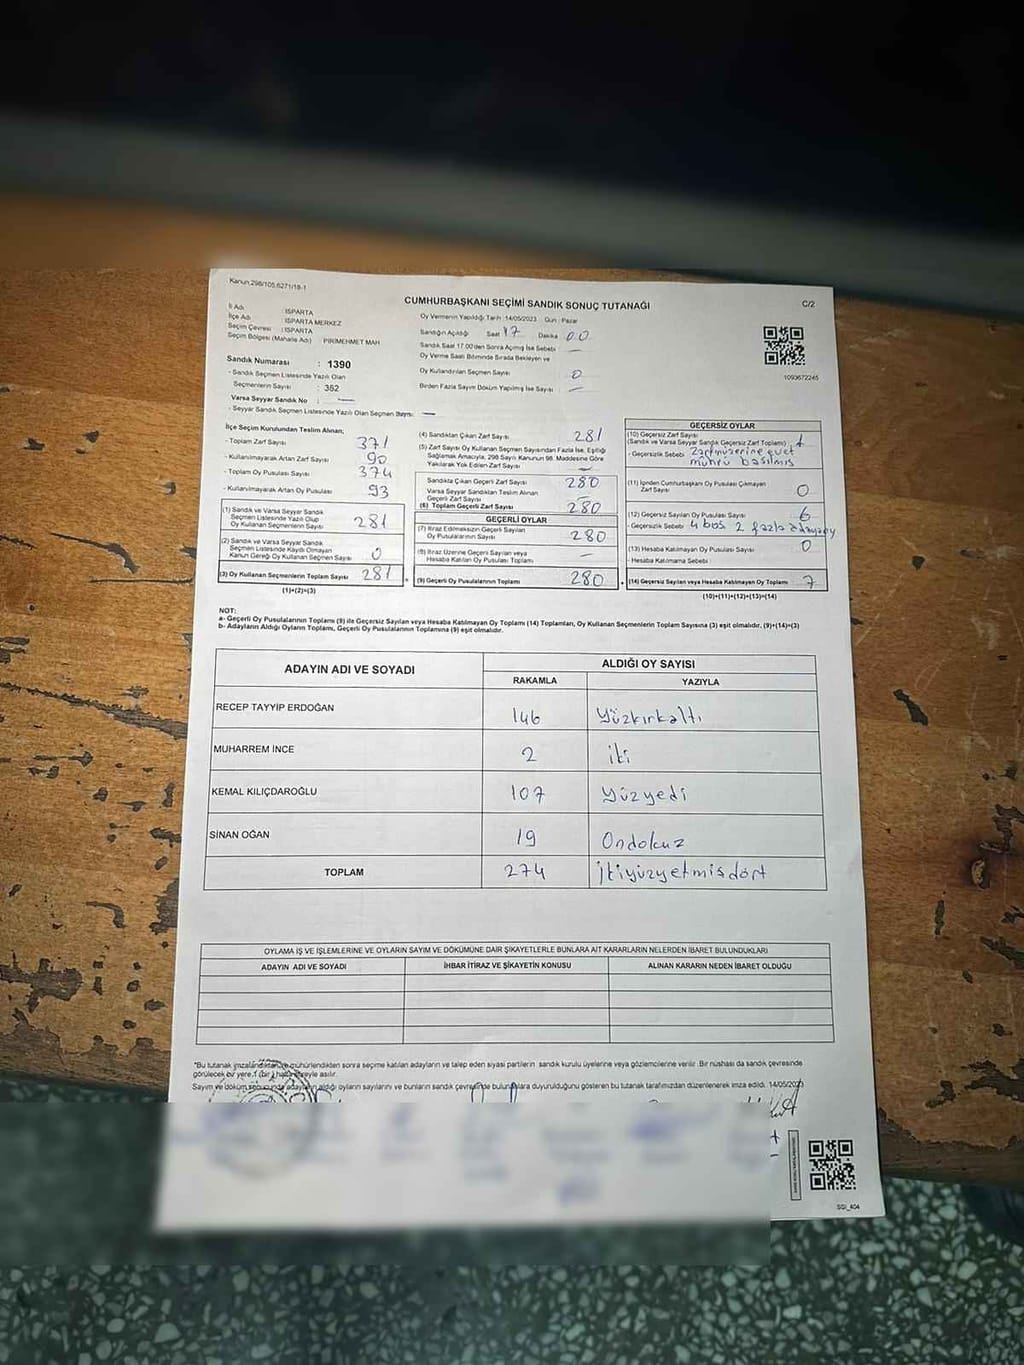 Kanun.298/105,6271/18-1
CUMHURBAŞKANI SEÇİMİ SANDIK SONUÇ TUTANAĞI
C/2
İl Adı : ISPARTA
İlçe Adı : ISPARTA MERKEZ
Seçim Çevresi : ISPARTA
Seçim Bölgesi (Mahalle Adı) : PİRİMEHMET MAH
Sandık Numarası : 1390
- Sandık Seçmen Listesinde Yazılı Olan
Seçmenlerin Sayısı : 352
Varsa Seyyar Sandık No : —
- Seyyar Sandık Seçmen Listesinde Yazılı Olan Seçmen Sayısı: —
Oy Vermenin Yapıldığı Tarih : 14/05/2023 Gün : Pazar
Sandığın Açıldığı Saat 17 Dakika 00
Sandık Saat 17.00'den Sonra Açılmış İse Sebebi —
Oy Verme Saati Bitiminde Sırada Bekleyen ve
Oy Kullandırılan Seçmen Sayısı 0
Birden Fazla Sayım Döküm Yapılmış İse Sayısı —
1093672245
İlçe Seçim Kurulundan Teslim Alınan;
- Toplam Zarf Sayısı 371
- Kullanılmayarak Artan Zarf Sayısı 90
- Toplam Oy Pusulası Sayısı 374
- Kullanılmayarak Artan Oy Pusulası 93
(1) Sandık ve Varsa Seyyar Sandık
Seçmen Listesinde Yazılı Olup
Oy Kullanan Seçmenlerin Sayısı 281
(2) Sandık ve Varsa Seyyar Sandık
Seçmen Listesinde Kaydı Olmayan
Kanun Gereği Oy Kullanan Seçmen Sayısı 0
(3) Oy Kullanan Seçmenlerin Toplam Sayısı 281
(1)+(2)=(3)
(4) Sandıktan Çıkan Zarf Sayısı 281
(5) Zarf Sayısı Oy Kullanan Seçmen Sayısından Fazla İse, Eşitliği
Sağlamak Amacıyla, 298 Sayılı Kanunun 98. Maddesine Göre
Yakılarak Yok Edilen Zarf Sayısı —
Sandıkta Çıkan Geçerli Zarf Sayısı 280
Varsa Seyyar Sandıktan Teslim Alınan
Geçerli Zarf Sayısı —
(6) Toplam Geçerli Zarf Sayısı 280
GEÇERLİ OYLAR
(7) İtiraz Edilmeksizin Geçerli Sayılan
Oy Pusulalarının Sayısı 280
(8) İtiraz Üzerine Geçerli Sayılan veya
Hesaba Katılan Oy Pusulası Toplamı —
(9) Geçerli Oy Pusulalarının Toplamı 280
GEÇERSİZ OYLAR
(10) Geçersiz Zarf Sayısı
(Sandık ve Varsa Seyyar Sandık Geçersiz Zarf Toplamı) 1
- Geçersizlik Sebebi Zarf üzerine evet
mührü basılmış
(11) İçinden Cumhurbaşkanı Oy Pusulası Çıkmayan
Zarf Sayısı 0
(12) Geçersiz Sayılan Oy Pusulası Sayısı 6
- Geçersizlik Sebebi 4 boş 2 fazla adaya oy
(13) Hesaba Katılmayan Oy Pusulası Sayısı 0
- Hesaba Katılmama Sebebi
(14) Geçersiz Sayılan veya Hesaba Katılmayan Oy Toplamı 7
(10)+(11)+(12)+(13)=(14)
NOT:
a- Geçerli Oy Pusulaları (9) ile Geçersiz Sayılan veya Hesaba Katılmayan Oy Toplamı (14) Toplamları, Oy Kullanan Seçmenlerin Toplam Sayısına (3) eşit olmalıdır. (9)+(14)=(3)
b- Adayların Aldığı Oyların Toplamı, Geçerli Oy Pusulalarının Toplamına (9) eşit olmalıdır.
ADAYIN ADI VE SOYADI
ALDIĞI OY SAYISI
RAKAMLA YAZIYLA
RECEP TAYYİP ERDOĞAN 146 Yüzkırkaltı
MUHARREM İNCE 2 iki
KEMAL KILIÇDAROĞLU 107 Yüzyedi
SİNAN OĞAN 19 Ondokuz
TOPLAM 274 ikiyüzyetmişdört
OYLAMA İŞ VE İŞLEMLERİNE VE OYLARIN SAYIM VE DÖKÜMÜNE DAİR ŞİKAYETLERLE BUNLARA AİT KARARLARIN NELERDEN İBARET BULUNDUKLARI
ADAYIN ADI VE SOYADI İHBAR İTİRAZ VE ŞİKAYETİN KONUSU ALINAN KARARIN NEDEN İBARET OLDUĞU
*Bu tutanak imzalandıktan ve mühürlendikten sonra seçime katılan adayların ve talep eden siyasi partilerin sandık kurulu üyelerine veya gözlemcilerine verilir. Bir nüshası da sandık çevresinde
görülecek bir yere 1 (bir) hafta süreyle asılır.
Sayım ve döküm sonucunda adayların aldığı oyların sayılarını ve bunların sandık çevresinde bulunanlara duyurulduğunu gösteren bu tutanak tarafımızdan düzenlenerek imza edildi. 14/05/2023
SGI_404